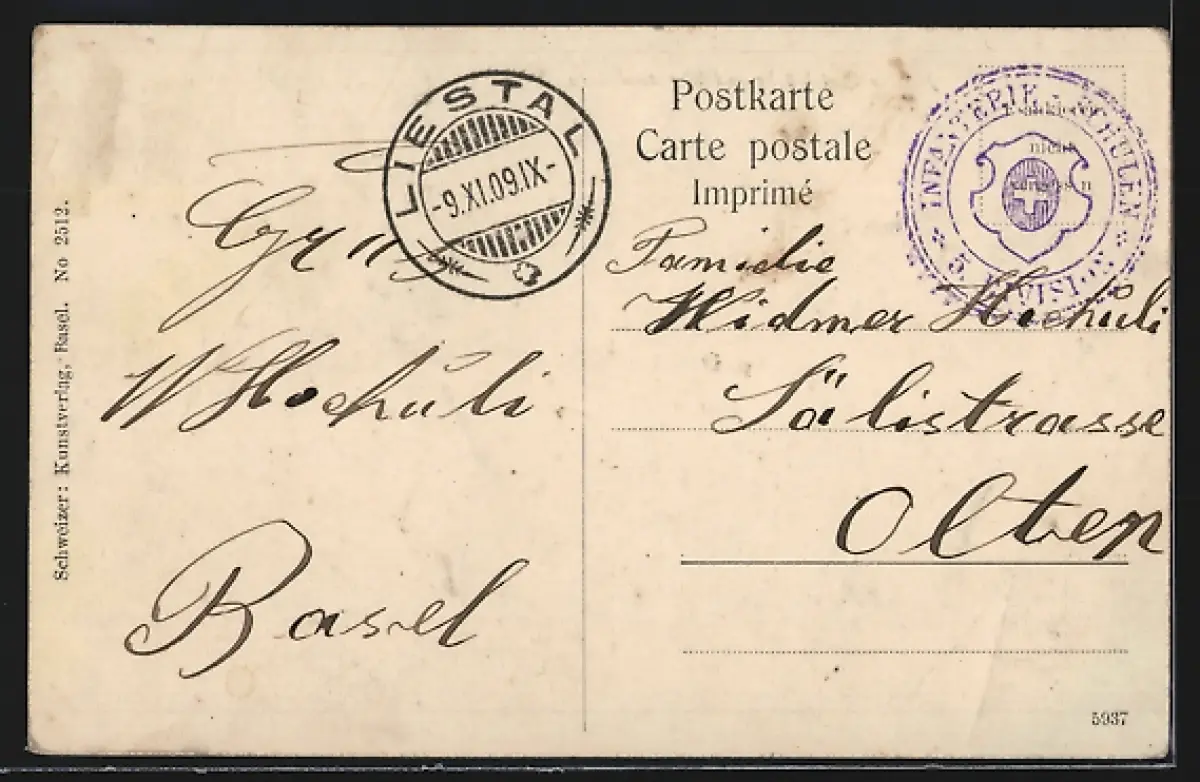 Postkarte
Carte postale
Imprimé
LIESTAL
-9.XI.09.IX-
INFANTERIE-SCHULEN
5. DIVISION
nicht
Gruss
W Hochuli
Basel
Familie
Widmer Hochuli
Sälistrasse
Olten
Schweizer: Kunstverlag, Basel. No 2512.
5937